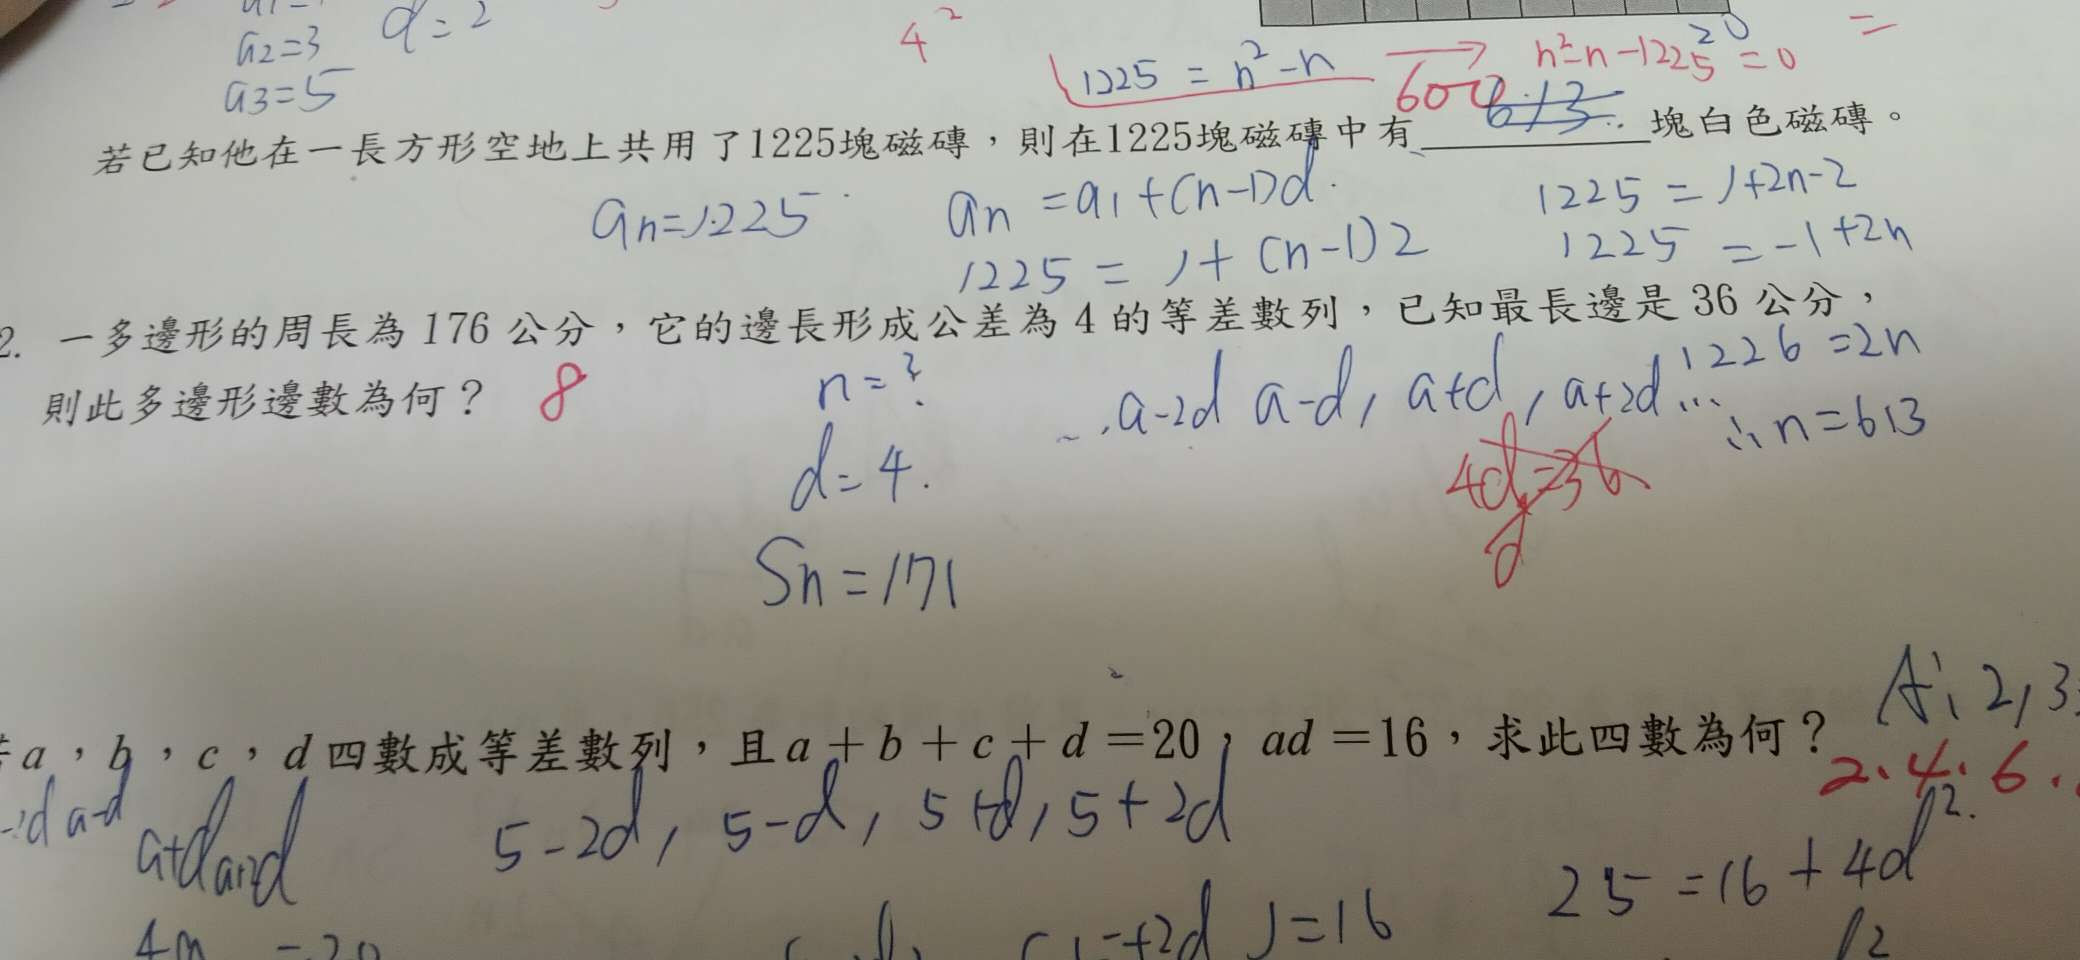 a2=3
d=2
a3=5
4²
1225 = n²-n
n²-n-1225=0
20
=
600
613
若已知他在一長方形空地上共用了1225塊磁磚，則在1225塊磁磚中有 塊白色磁磚。
an=1225
an = a1+(n-1)d
1225 = 1+(n-1)2
1225 = 1+2n-2
1225 = -1+2n
1226 =2n
∴n=613
2. 一多邊形的周長為 176 公分，它的邊長形成公差為 4 的等差數列，已知最長邊是 36 公分，
則此多邊形邊數為何？ 8
n=?
d=4.
Sn=171
a-2d a-d, a+d, a+2d ...
4d=36
d
a，b，c，d 四數成等差數列，且a＋b＋c＋d＝20，ad＝16，求此四數為何？
A: 2, 3
2. 4. 6.
a-d
a+d
a+2d
5-2d, 5-d, 5+d, 5+2d
25=16+4d²
=16